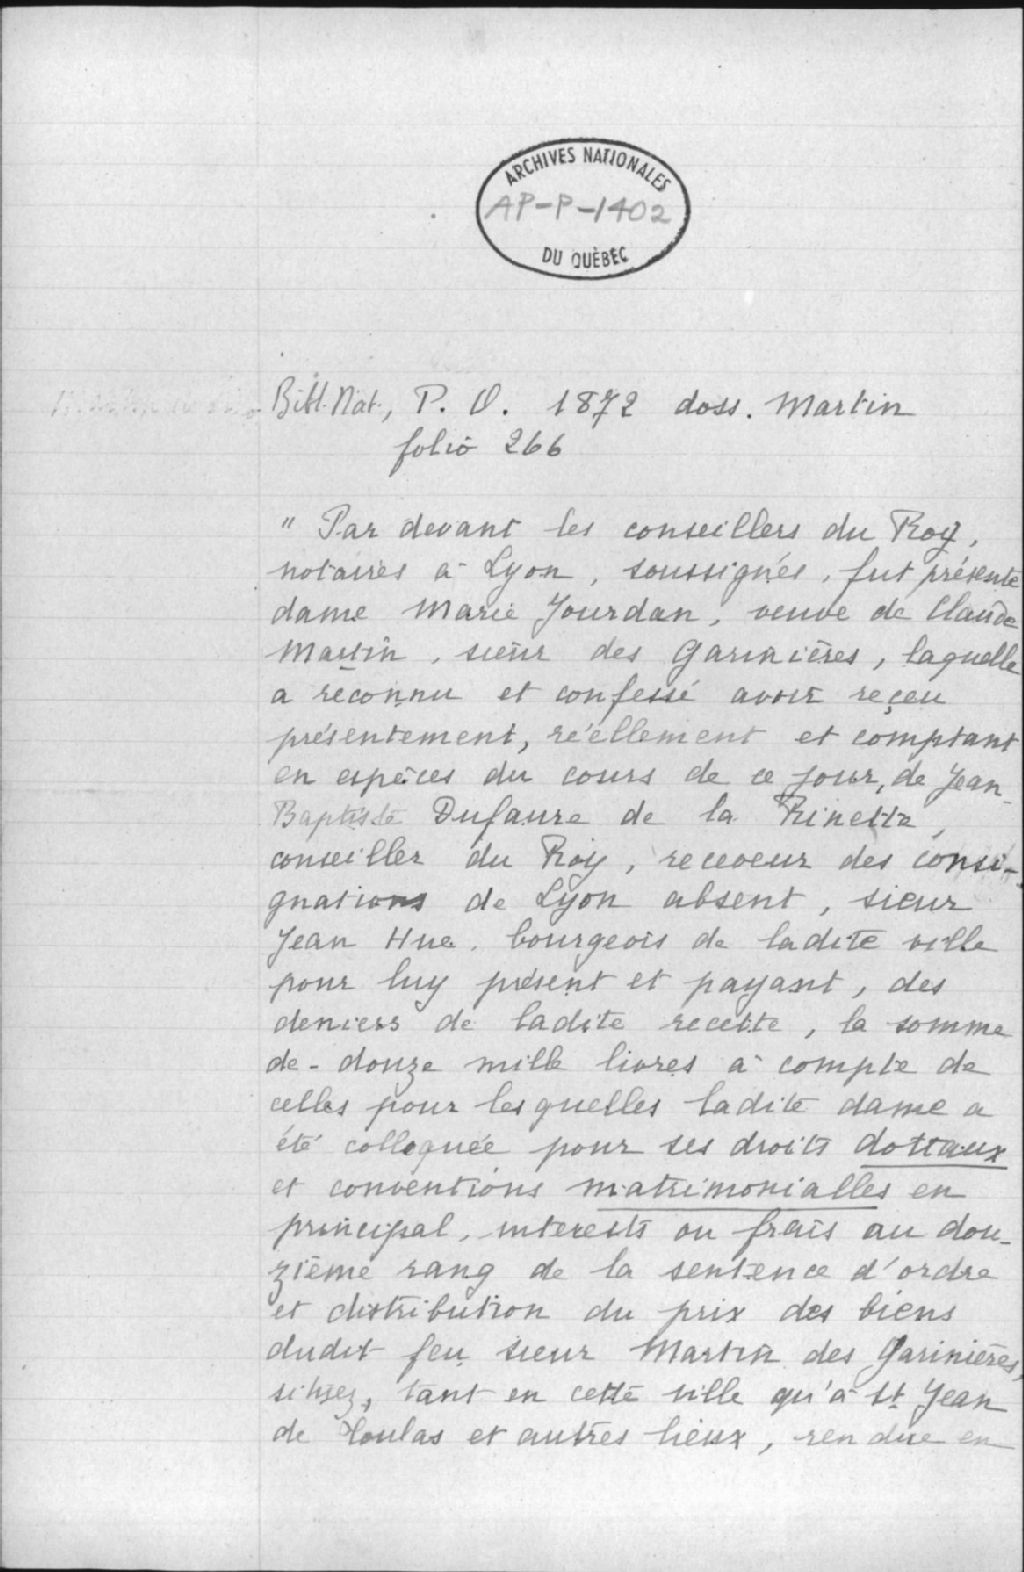 ARCHIVES NATIONALES
AP-P-1402
DU QUÉBEC
Bibl. Nat., P. O. 1872 doss. Martin
folio 266
" Par devant les conseillers du Roy,
notaires à Lyon, soussignés, fut présente
dame Marie Jourdan, veuve de Claude
Martin, sieur des Garinières, laquelle
a reconnu et confessé avoir reçeu
présentement, réellement et comptant
en espèces du cours de ce jour, de Jean-
Baptiste Dufaure de la
conseiller du Roy, receveur des consi-
gnations de Lyon absent, sieur
Jean Hue, bourgeois de ladite ville
pour luy présent et payant, des
deniers de ladite recette, la somme
de - douze mille livres à compte de
celles pour lesquelles ladite dame a
été colloquée pour ses droits dottaux
et conventions matrimonialles en
principal, interests ou frais au dou-
zième rang de la sentence d'ordre
et distribution du prix des biens
dudit feu sieur Martin des Garinières,
situez, tant en cette ville qu'à St Jean
de Toulas et autres lieux, rendue en